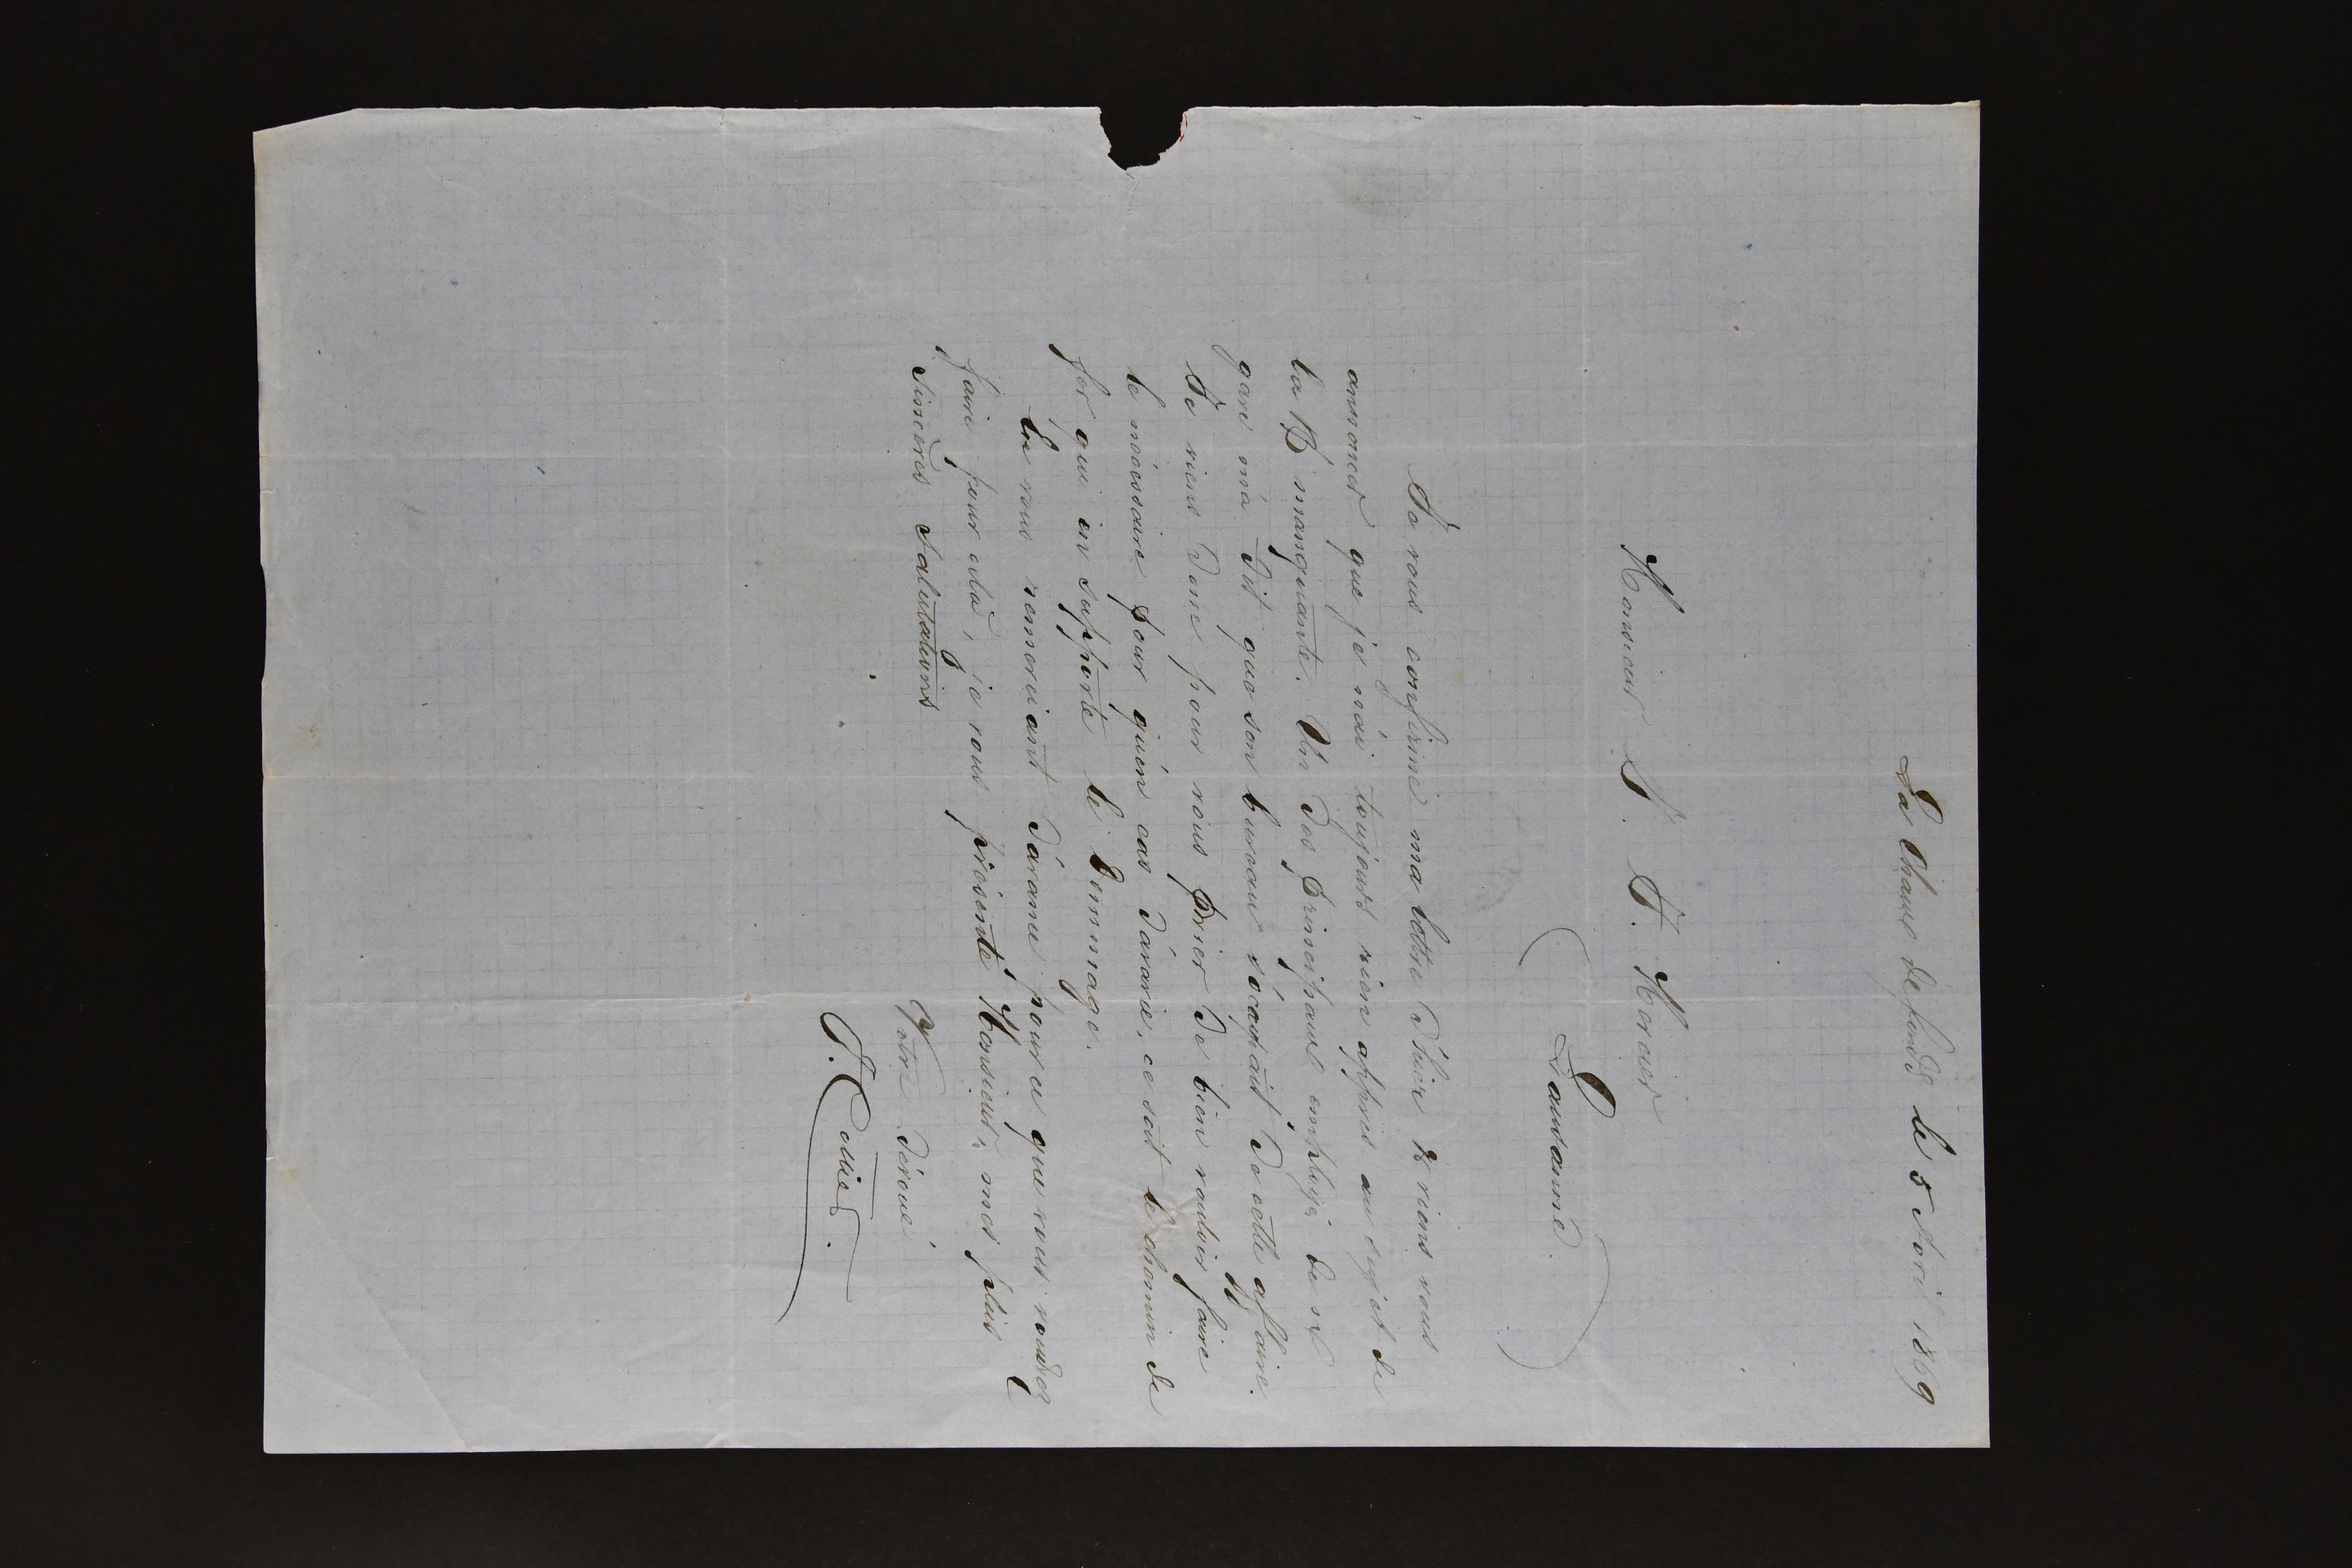 La Chaux de fonds le 5 Avril 1869
Monsieur J. J. Mercier
Lausanne.
Je vous confirme ma lettre d'hier & viens vous
annoncer que je n'ai toujours rien appris au sujet de
la B manquante. Un des principaux employé de n/
gare m'a dit que son bureau s'ocupait de cette affaire.
Je viens donc pour vous prier de bien vouloir faire
le nécessaire pour qu'en cas d'avarie, ce soit le chemin de
fer qui en supporte le dommage.
En vous remerciant d'avance pour ce que vous voudrez
faire pour cela, je vous présente Monsieur, mes plus
sincères salutations
Votre dévoué